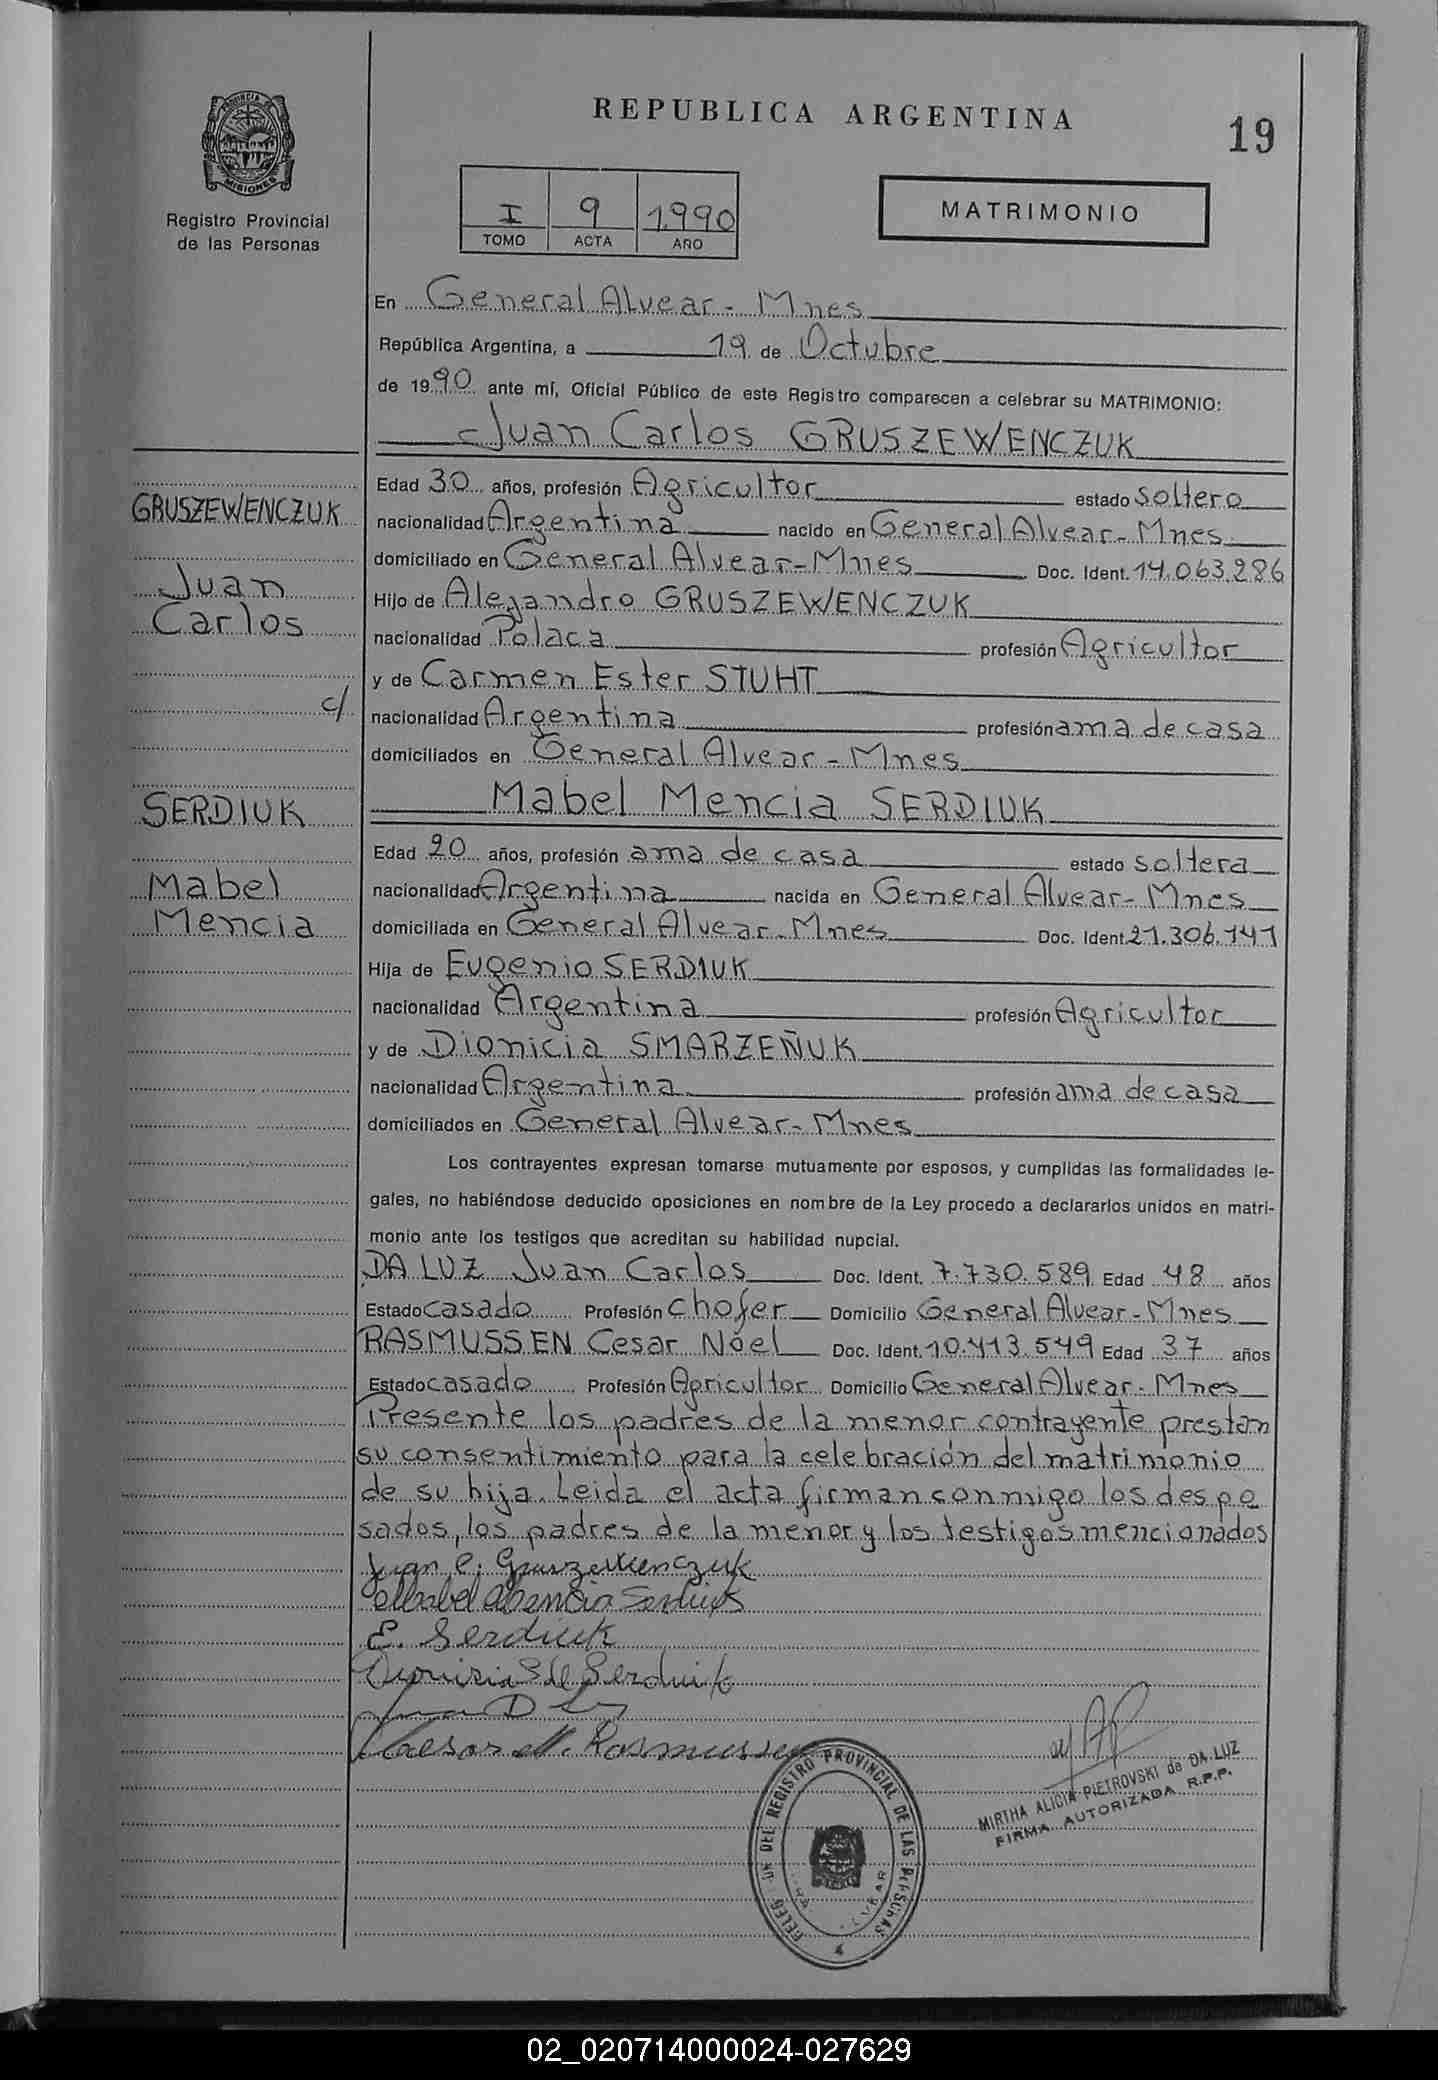 PROVINCIA DE
MISIONES
Registro Provincial
de las Personas
REPUBLICA ARGENTINA
19
I 9 1.990
TOMO ACTA AÑO
MATRIMONIO
En General Alvear - Mnes
República Argentina, a 19 de Octubre
de 1990 ante mí, Oficial Público de este Registro comparecen a celebrar su MATRIMONIO:
Juan Carlos GRUSZEWENCZUK
Edad 30 años, profesión Agricultor estado soltero
GRUSZEWENCZUK
nacionalidad Argentina nacido en General Alvear - Mnes.
domiciliado en General Alvear - Mnes Doc. Ident. 14.063.286
Juan
Hijo de Alejandro GRUSZEWENCZUK
Carlos
nacionalidad Polaca profesión Agricultor
y de Carmen Ester STUHT
c/
nacionalidad Argentina profesión ama de casa
domiciliados en General Alvear - Mnes
SERDIUK
Mabel Mencia SERDIUK
Edad 20 años, profesión ama de casa estado soltera
Mabel
nacionalidad Argentina nacida en General Alvear - Mnes
Mencia
domiciliada en General Alvear - Mnes Doc. Ident. 21.306.141
Hija de Eugenio SERDIUK
nacionalidad Argentina profesión Agricultor
y de Dionicia SMARZEÑUK
nacionalidad Argentina profesión ama de casa
domiciliados en General Alvear - Mnes
Los contrayentes expresan tomarse mutuamente por esposos, y cumplidas las formalidades le-
gales, no habiéndose deducido oposiciones en nombre de la Ley procedo a declararlos unidos en matri-
monio ante los testigos que acreditan su habilidad nupcial.
DA LUZ Juan Carlos Doc. Ident. 7.730.589 Edad 48 años
Estado casado Profesión chofer Domicilio General Alvear - Mnes
RASMUSSEN Cesar Nóel Doc. Ident. 10.413.549 Edad 37 años
Estado casado Profesión Agricultor Domicilio General Alvear - Mnes
Presente los padres de la menor contrayente prestan
su consentimiento para la celebración del matrimonio
de su hija. Leida el acta firman conmigo los despo
sados, los padres de la menor y los testigos mencionados
Juan C. Gruszewenczuk
Mabel Mencia Serdiuk
E. Serdiuk
Dionisia S de Serdiuk
Juan D
Caesar N. Rasmussen
DEL REGISTRO PROVINCIAL DE LAS PERSONAS
MIRTHA ALICIA PIETROVSKI de DA LUZ
FIRMA AUTORIZADA R.P.P.
02_020714000024-027629